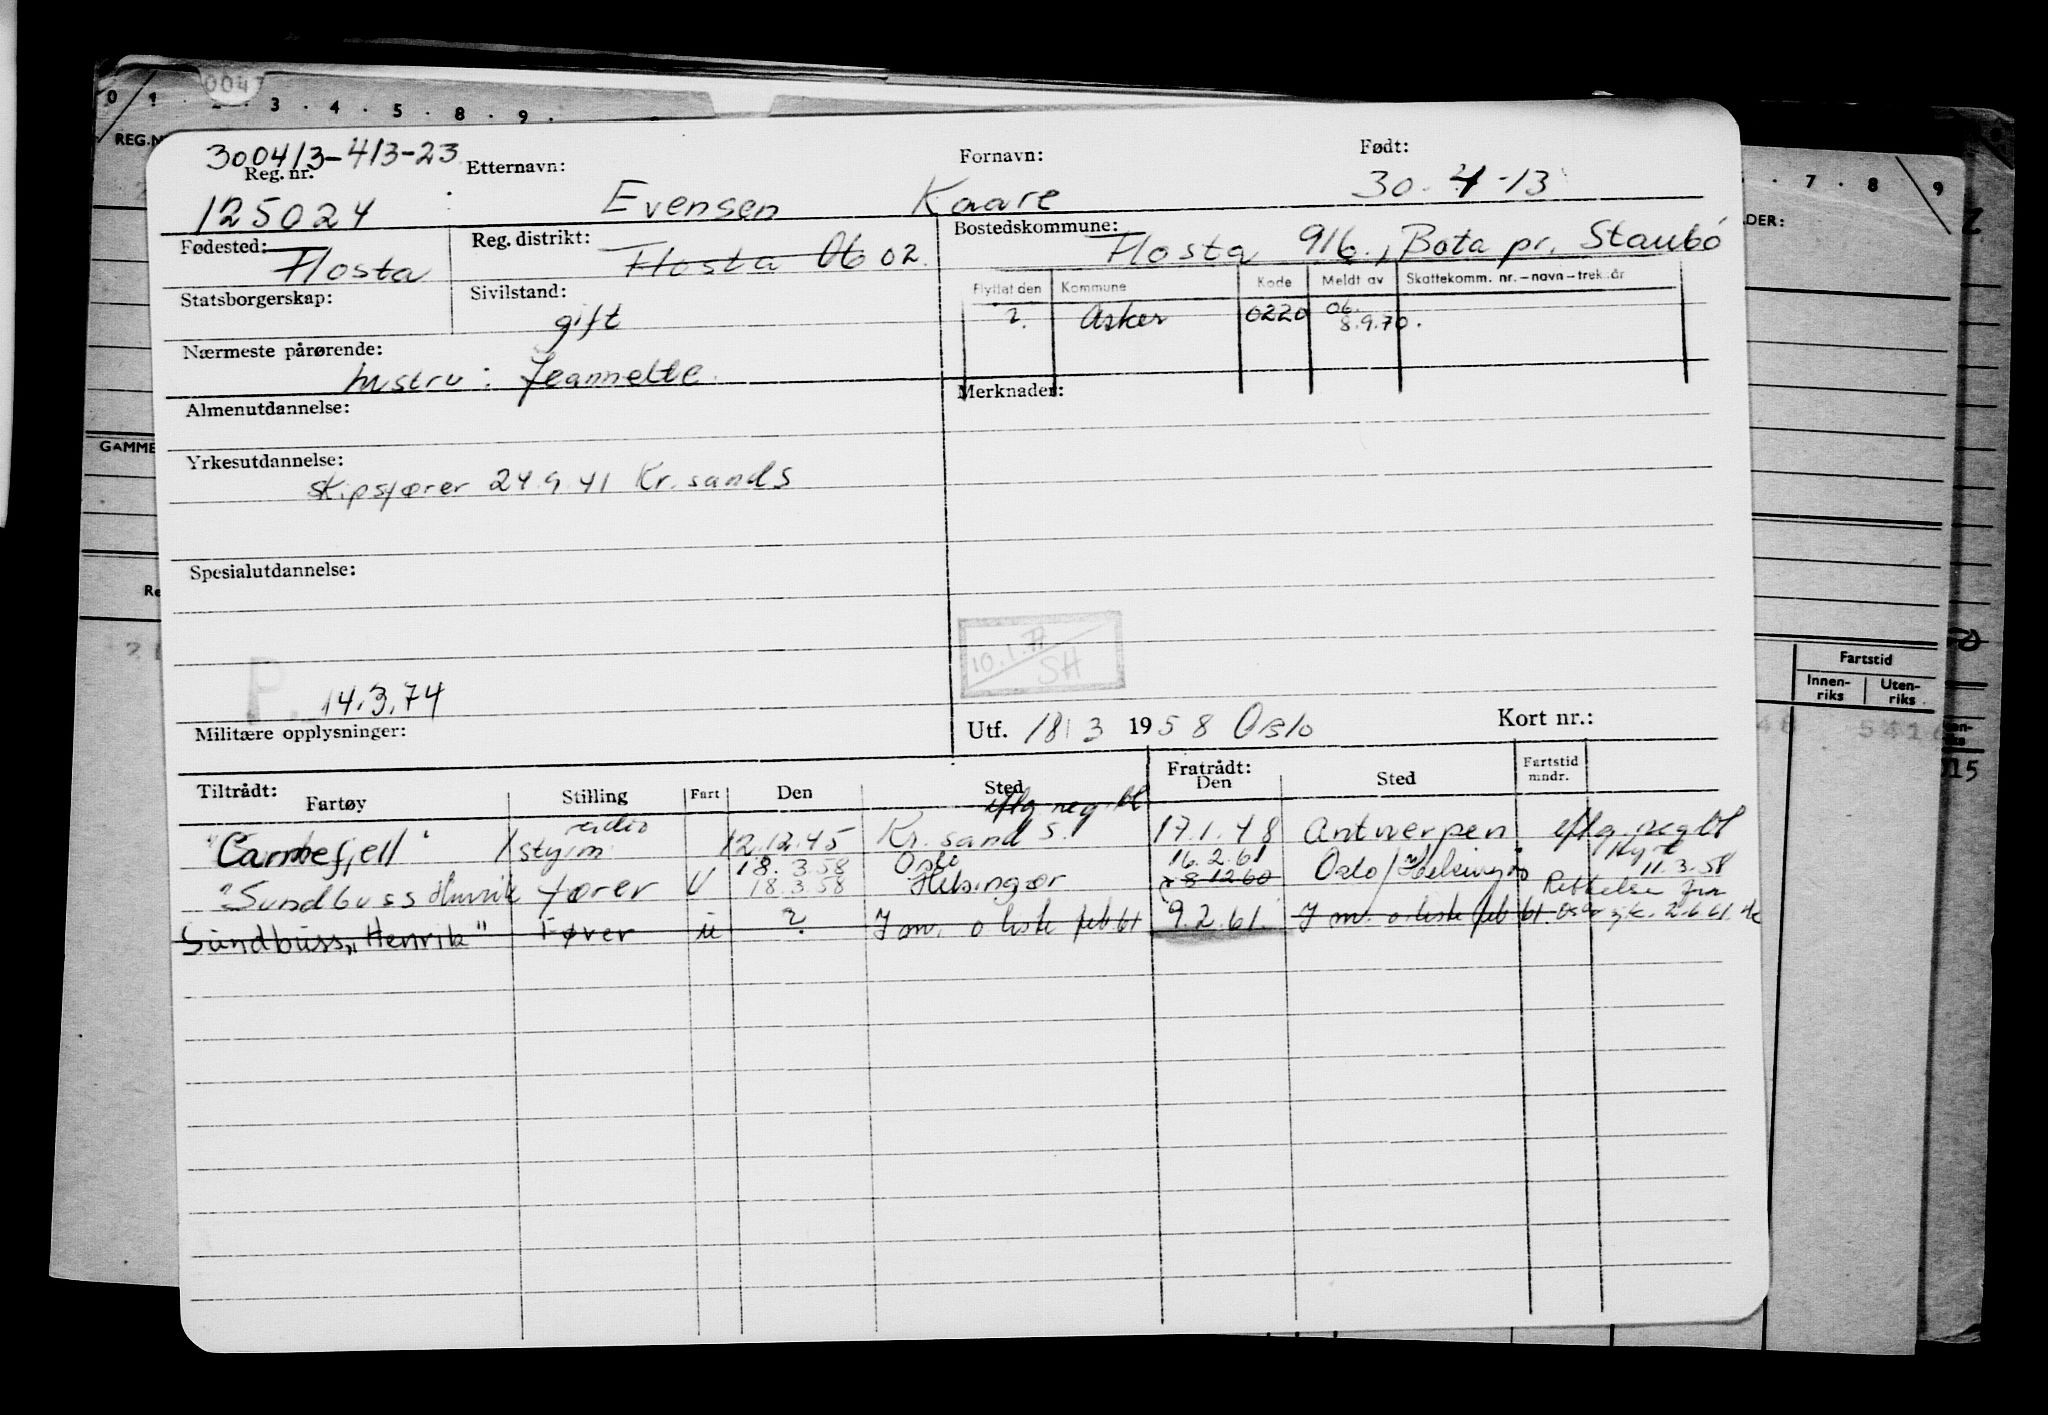 004
0 1 2 3 4 5 8 9
7 8 9
REG.N
DER:
300413-413-23
Reg. nr. Etternavn: Fornavn: Født:
125024 Evensen Kaare 30-4-13
Fødested: Reg. distrikt: Bostedskommune:
Flosta Flosta 06 02. Flosta 916., Bota pr. Staubø
Statsborgerskap: Sivilstand: Flyttet den Kommune Kode Meldt av Skattekomm. nr.-navn-trek.år
gift ?. Asker 0220 06 8.9.70.
Nærmeste pårørende:
hustru: Jeannette. Merknader:
Almenutdannelse:
GAMME
Yrkesutdannelse:
Skipsfører 24.9.41 Kr.sands
Spesialutdannelse:
Re
SH
P. 14.3.74
Fartstid
Innen-riks Uten-riks
Militære opplysninger: Utf. 18/3 1958 Oslo Kort nr.:
15
Tiltrådt: Fratrådt:
Fartøy Stilling Fart Den Sted Den Sted Fartstid mndr.
eflg reg.bl
radio
"Carmefjell" 1 styrm 12.12.45 Kr.sand S. 17.1.48 Antwerpen eflg. reg bl
18.3.58 Oslo 16.2.61 11.3.58
"Sundbuss Henrik fører U 18.3.58 Helsingør 8 12 60 Oslo/Helsingør Rettelse fra
Sundbuss "Henrik" Fører u ? J mv. o liste feb 61 9.2.61. J mv. o liste feb 61. Oslo 2.6.61